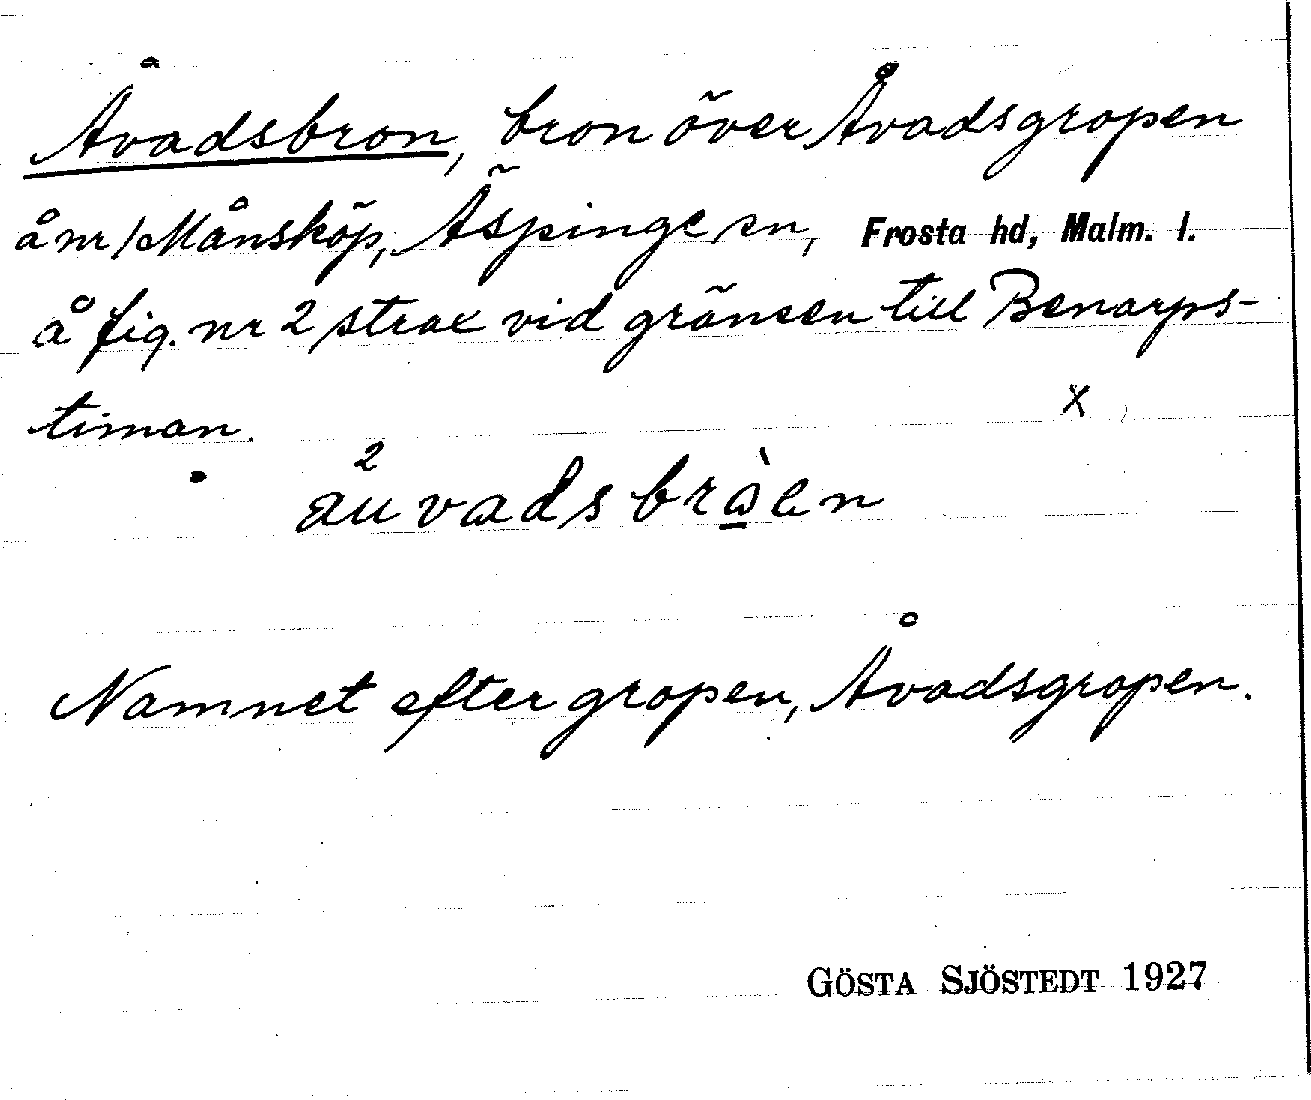 Åvadsbron, bron över Åvadsgropen
å nr 1 Månsköp, Äspinge sn, Frosta hd, Malm. l.
å fig. nr 2 strax vid gränsen till Benarps-
timan.
x
åu²vadsbrὰen
Namnet efter gropen, Åvadsgropen.
GÖSTA SJÖSTEDT 1927